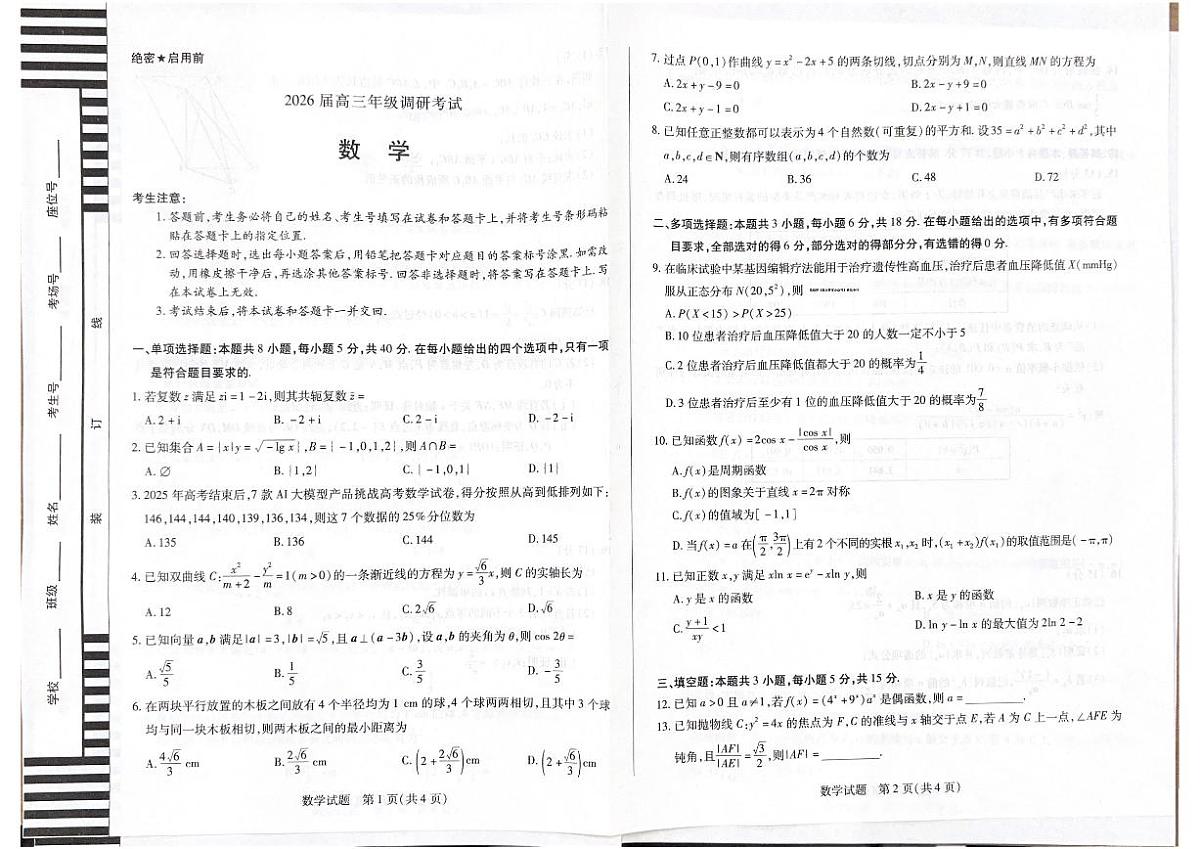 绝密★启用前
2026 届高三年级调研考试
数 学
考生注意:
1. 答题前,考生务必将自己的姓名、考生号填写在试卷和答题卡上,并将考生号条形码粘
贴在答题卡上的指定位置.
2. 回答选择题时,选出每小题答案后,用铅笔把答题卡对应题目的答案标号涂黑. 如需改
动,用橡皮擦干净后,再选涂其他答案标号. 回答非选择题时,将答案写在答题卡上. 写
在本试卷上无效.
3. 考试结束后,将本试卷和答题卡一并交回.
一、单项选择题:本题共 8 小题,每小题 5 分,共 40 分. 在每小题给出的四个选项中,只有一项
是符合题目要求的.
1. 若复数 z 满足 zi = 1 - 2i,则其共轭复数 z̄ =
A. 2 + i B. -2 + i C. 2 - i D. -2 - i
2. 已知集合 A = {x|y = √(-lg x)},B = { -1,0,1,2},则 A∩B =
A. ∅ B. {1,2} C. { -1,0,1} D. {1}
3. 2025 年高考结束后,7 款 AI 大模型产品挑战高考数学试卷,得分按照从高到低排列如下:
146,144,144,140,139,136,134,则这 7 个数据的 25% 分位数为
A. 135 B. 136 C. 144 D. 145
4. 已知双曲线 C: x²/(m+2) - y²/m = 1(m>0)的一条渐近线的方程为 y = √6/3 x,则 C 的实轴长为
A. 12 B. 8 C. 2√6 D. √6
5. 已知向量 a,b 满足|a| = 3,|b| = √5,且 a⊥(a - 3b),设 a,b 的夹角为 θ,则 cos 2θ =
A. √5/5 B. 1/5 C. 3/5 D. -3/5
6. 在两块平行放置的木板之间放有 4 个半径均为 1 cm 的球,4 个球两两相切,且其中 3 个球
均与同一块木板相切,则两木板之间的最小距离为
A. 4√6/3 cm B. 2√6/3 cm C. (2 + 2√6/3) cm D. (2 + √6/3) cm
数学试题 第 1 页(共 4 页)
7. 过点 P(0,1)作曲线 y = x² - 2x + 5 的两条切线,切点分别为 M,N,则直线 MN 的方程为
A. 2x + y - 9 = 0 B. 2x - y + 9 = 0
C. 2x + y - 1 = 0 D. 2x - y + 1 = 0
8. 已知任意正整数都可以表示为 4 个自然数(可重复)的平方和. 设 35 = a² + b² + c² + d²,其中
a,b,c,d∈N,则有序数组(a,b,c,d)的个数为
A. 24 B. 36 C. 48 D. 72
二、多项选择题:本题共 3 小题,每小题 6 分,共 18 分. 在每小题给出的选项中,有多项符合题
目要求,全部选对的得 6 分,部分选对的得部分分,有选错的得 0 分.
9. 在临床试验中某基因编辑疗法能用于治疗遗传性高血压,治疗后患者血压降低值 X(mmHg)
服从正态分布 N(20,5²),则
A. P(X<15) > P(X>25)
B. 10 位患者治疗后血压降低值大于 20 的人数一定不小于 5
C. 2 位患者治疗后血压降低值都大于 20 的概率为 1/4
D. 3 位患者治疗后至少有 1 位的血压降低值大于 20 的概率为 7/8
10. 已知函数 f(x) = 2cos x - |cos x|/cos x,则
A. f(x)是周期函数
B. f(x)的图象关于直线 x = 2π 对称
C. f(x)的值域为[ -1,1]
D. 当 f(x) = a 在(π/2, 3π/2)上有 2 个不同的实根 x₁,x₂ 时,(x₁ + x₂)f(x₁)的取值范围是( -π,π)
11. 已知正数 x,y 满足 xln x = eʸ - xln y,则
A. y 是 x 的函数 B. x 是 y 的函数
C. (y+1)/xy < 1 D. ln y - ln x 的最大值为 2ln 2 - 2
三、填空题:本题共 3 小题,每小题 5 分,共 15 分.
12. 已知 a>0 且 a≠1,若 f(x) = (4ˣ + 9ˣ)aˣ 是偶函数,则 a = ________.
13. 已知抛物线 C:y² = 4x 的焦点为 F,C 的准线与 x 轴交于点 E,若 A 为 C 上一点,∠AFE 为
钝角,且|AF|/|AE| = √3/2,则|AF| = ________.
数学试题 第 2 页(共 4 页)
学校 班级 姓名 考生号 考场号 座位号
装 订 线